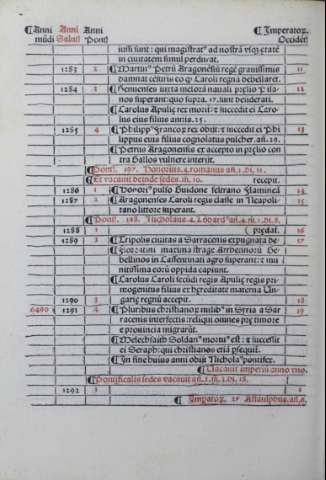 ¶Anni Anni Anni ¶Imperatoꝝ
mūdi Salutꝭ Pont Occidētꝭ
iussi sunt: qui magistratꝰ ad nostrā vsqꝫ etatē
in ciuitatem simul perdurat.
1283 2 ¶Martinꝰ Petrū Aragonēsiū regē grauissimis 11
damnat cēsuris eo qꝫ Caroli regna debellaret.
1284 3 ¶Genuenses iuxta melorā nauali prelio Pisa- 12
nos superant: quo supra. 17. sunt desiderati.
¶Carolus Apulie rex morit: et succedit ei Caro-
lus eius filius annis. 25.
1285 4 ¶Philippꝰ Francoꝝ rex obijt: et succedit ei Phi- 13
lippus eius filius cognōatus pulcher. añ. 29.
¶Petrus Aragonensiū rex accepto in prelio con
tra Gallos vulnere interijt.
¶Pont. 197. Honorius. 4. romanus añ. 2. di. 11.
¶Et vacauit deinde sedes. m̄. 10. recepit.
1286 1 ¶Honoriꝰ Guidone feltrano Flamineā 14
1287 2 ¶Aragonenses Caroli regis classe in Neapoli- 15
tano littore superant.
¶Pont. 198. Nicholaus. 4.
1288 1 (predat. 16
1289 2 ¶Tripolis ciuitas a Sarracenis expugnata de- 17
¶Florentini maxima strage Arhetinoꝝ Ge-
bellinos in Cassentinati agro superant: et mu
nitissima eoꝝ oppida capiunt.
¶Carolus Caroli secūdi regis Apulie regis pri
mogenitus filius ex hereditate materna Vn-
1290 3 garie regnū accepit. 18
6490 1291 4 ¶Pluribus christianoꝝ milibꝰ in Syria a Sar 19
racenis interfectis: reliqui omnes pre timore
e prouincia migrarūt.
¶Melechsaith Soldanꝰ moritur est: et succedit
ei Seraph: qui christianos etiā persequit.
¶In fine huius anni obijt Nicholaꝰ pontifex.
¶Vacauit imperiū anno vno.
¶Pontificalis sedes vacauit añ. 2. m̄. 3. di. 18.
1292 1 1
¶Imperatoꝝ. 95 Astaulphus. añ. 6.